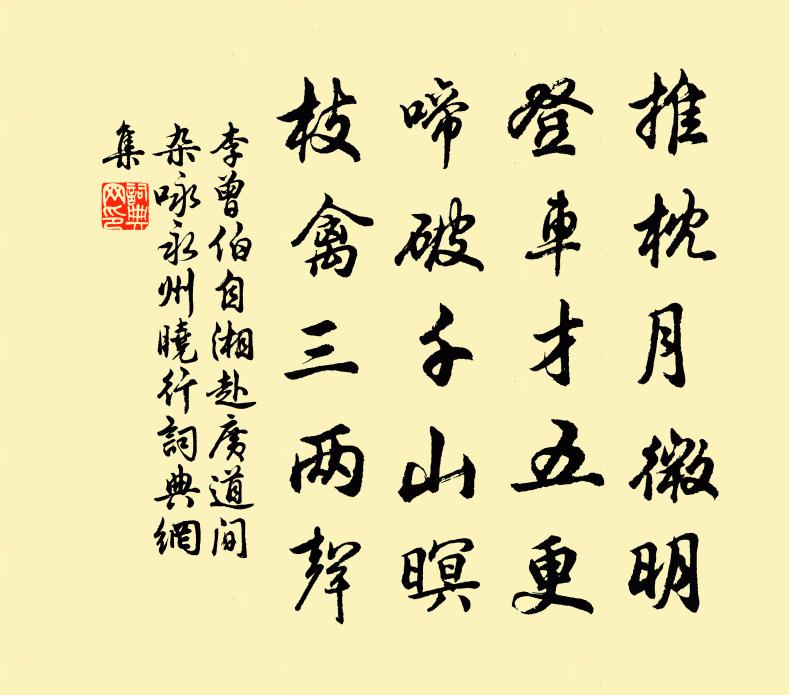 推枕月微明
登車才五更
啼破千山暝
枝禽三两聲
李曾伯自湘赴廣道间
杂咏永州曉行詞典網
集
詞典
网印